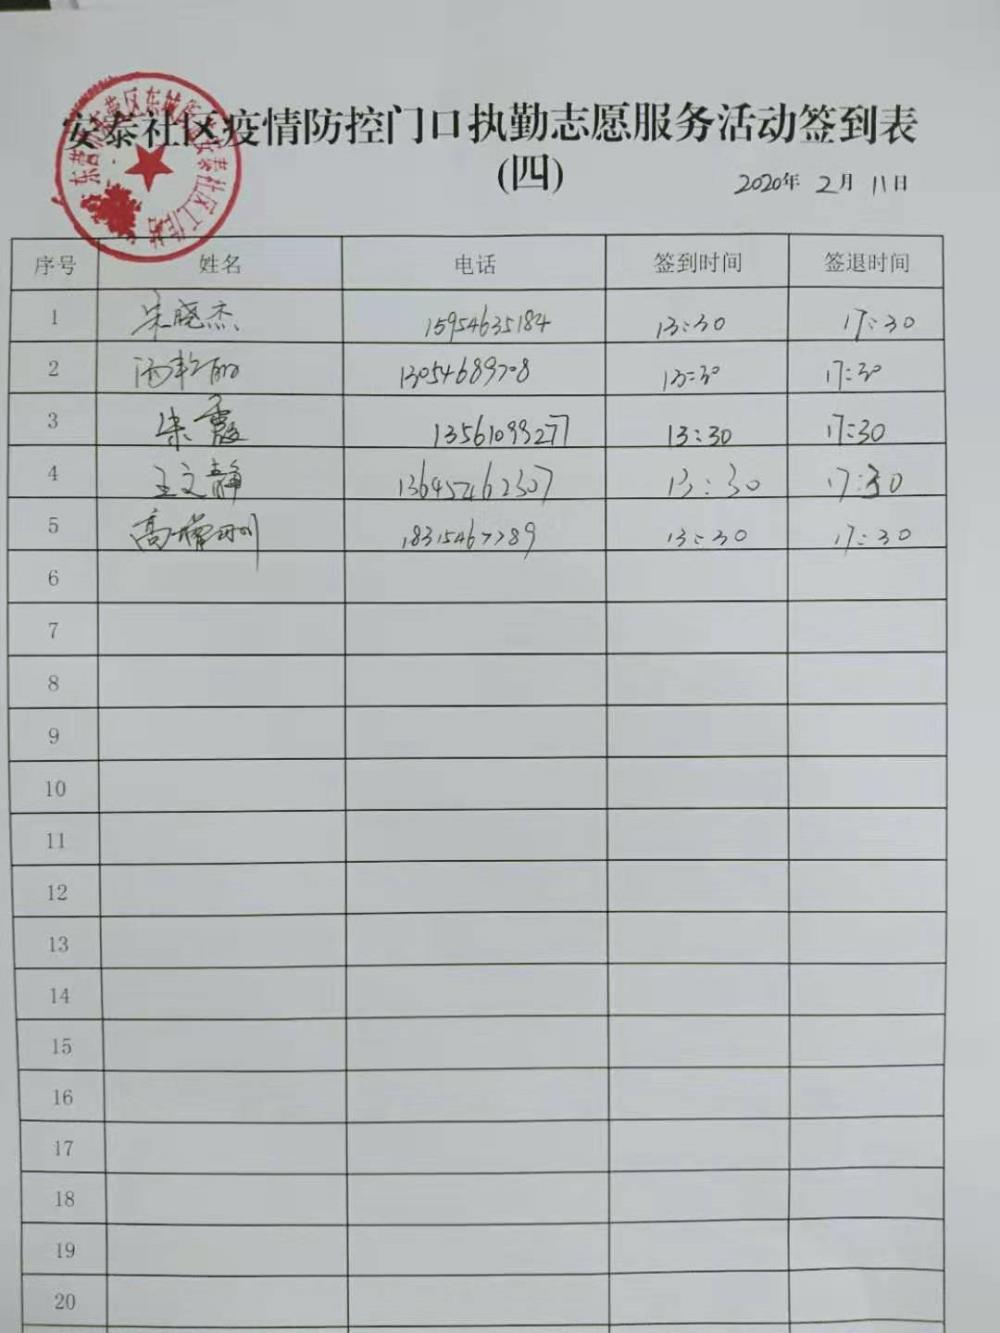 安泰社区疫情防控门口执勤志愿服务活动签到表
(四)
2020年 2月 11日
序号 姓名 电话 签到时间 签退时间
1 朱晓杰 15954635184 13:30 17:30
2 13054689708 13:30 17:30
3 朱霞 13561099277 13:30 17:30
4 王文静 13645462307 13:30 17:30
5 高 18315467789 13:30 17:30
6
7
8
9
10
11
12
13
14
15
16
17
18
19
20